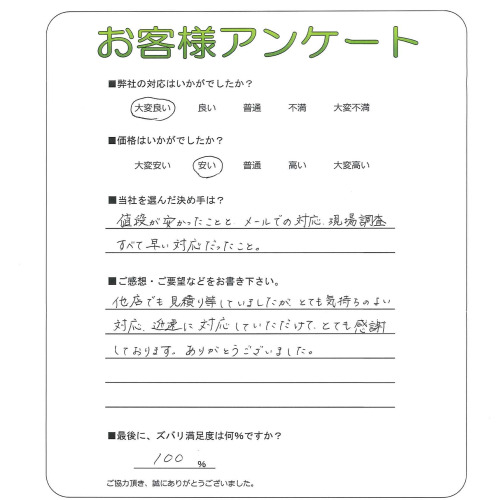 お客様アンケート
■弊社の対応はいかがでしたか？
大変良い 良い 普通 不満 大変不満
■価格はいかがでしたか？
大変安い 安い 普通 高い 大変高い
■当社を選んだ決め手は？
値段が安かったことと、メールでの対応、現場調査
すべて早い対応だったこと。
■ご感想・ご要望などをお書き下さい。
他店でも見積り等していましたが、とても気持ちのよい
対応、迅速に対応していただけて、とても感謝
しております。ありがとうございました。
■最後に、ズバリ満足度は何%ですか？
100 %
ご協力頂き、誠にありがとうございました。